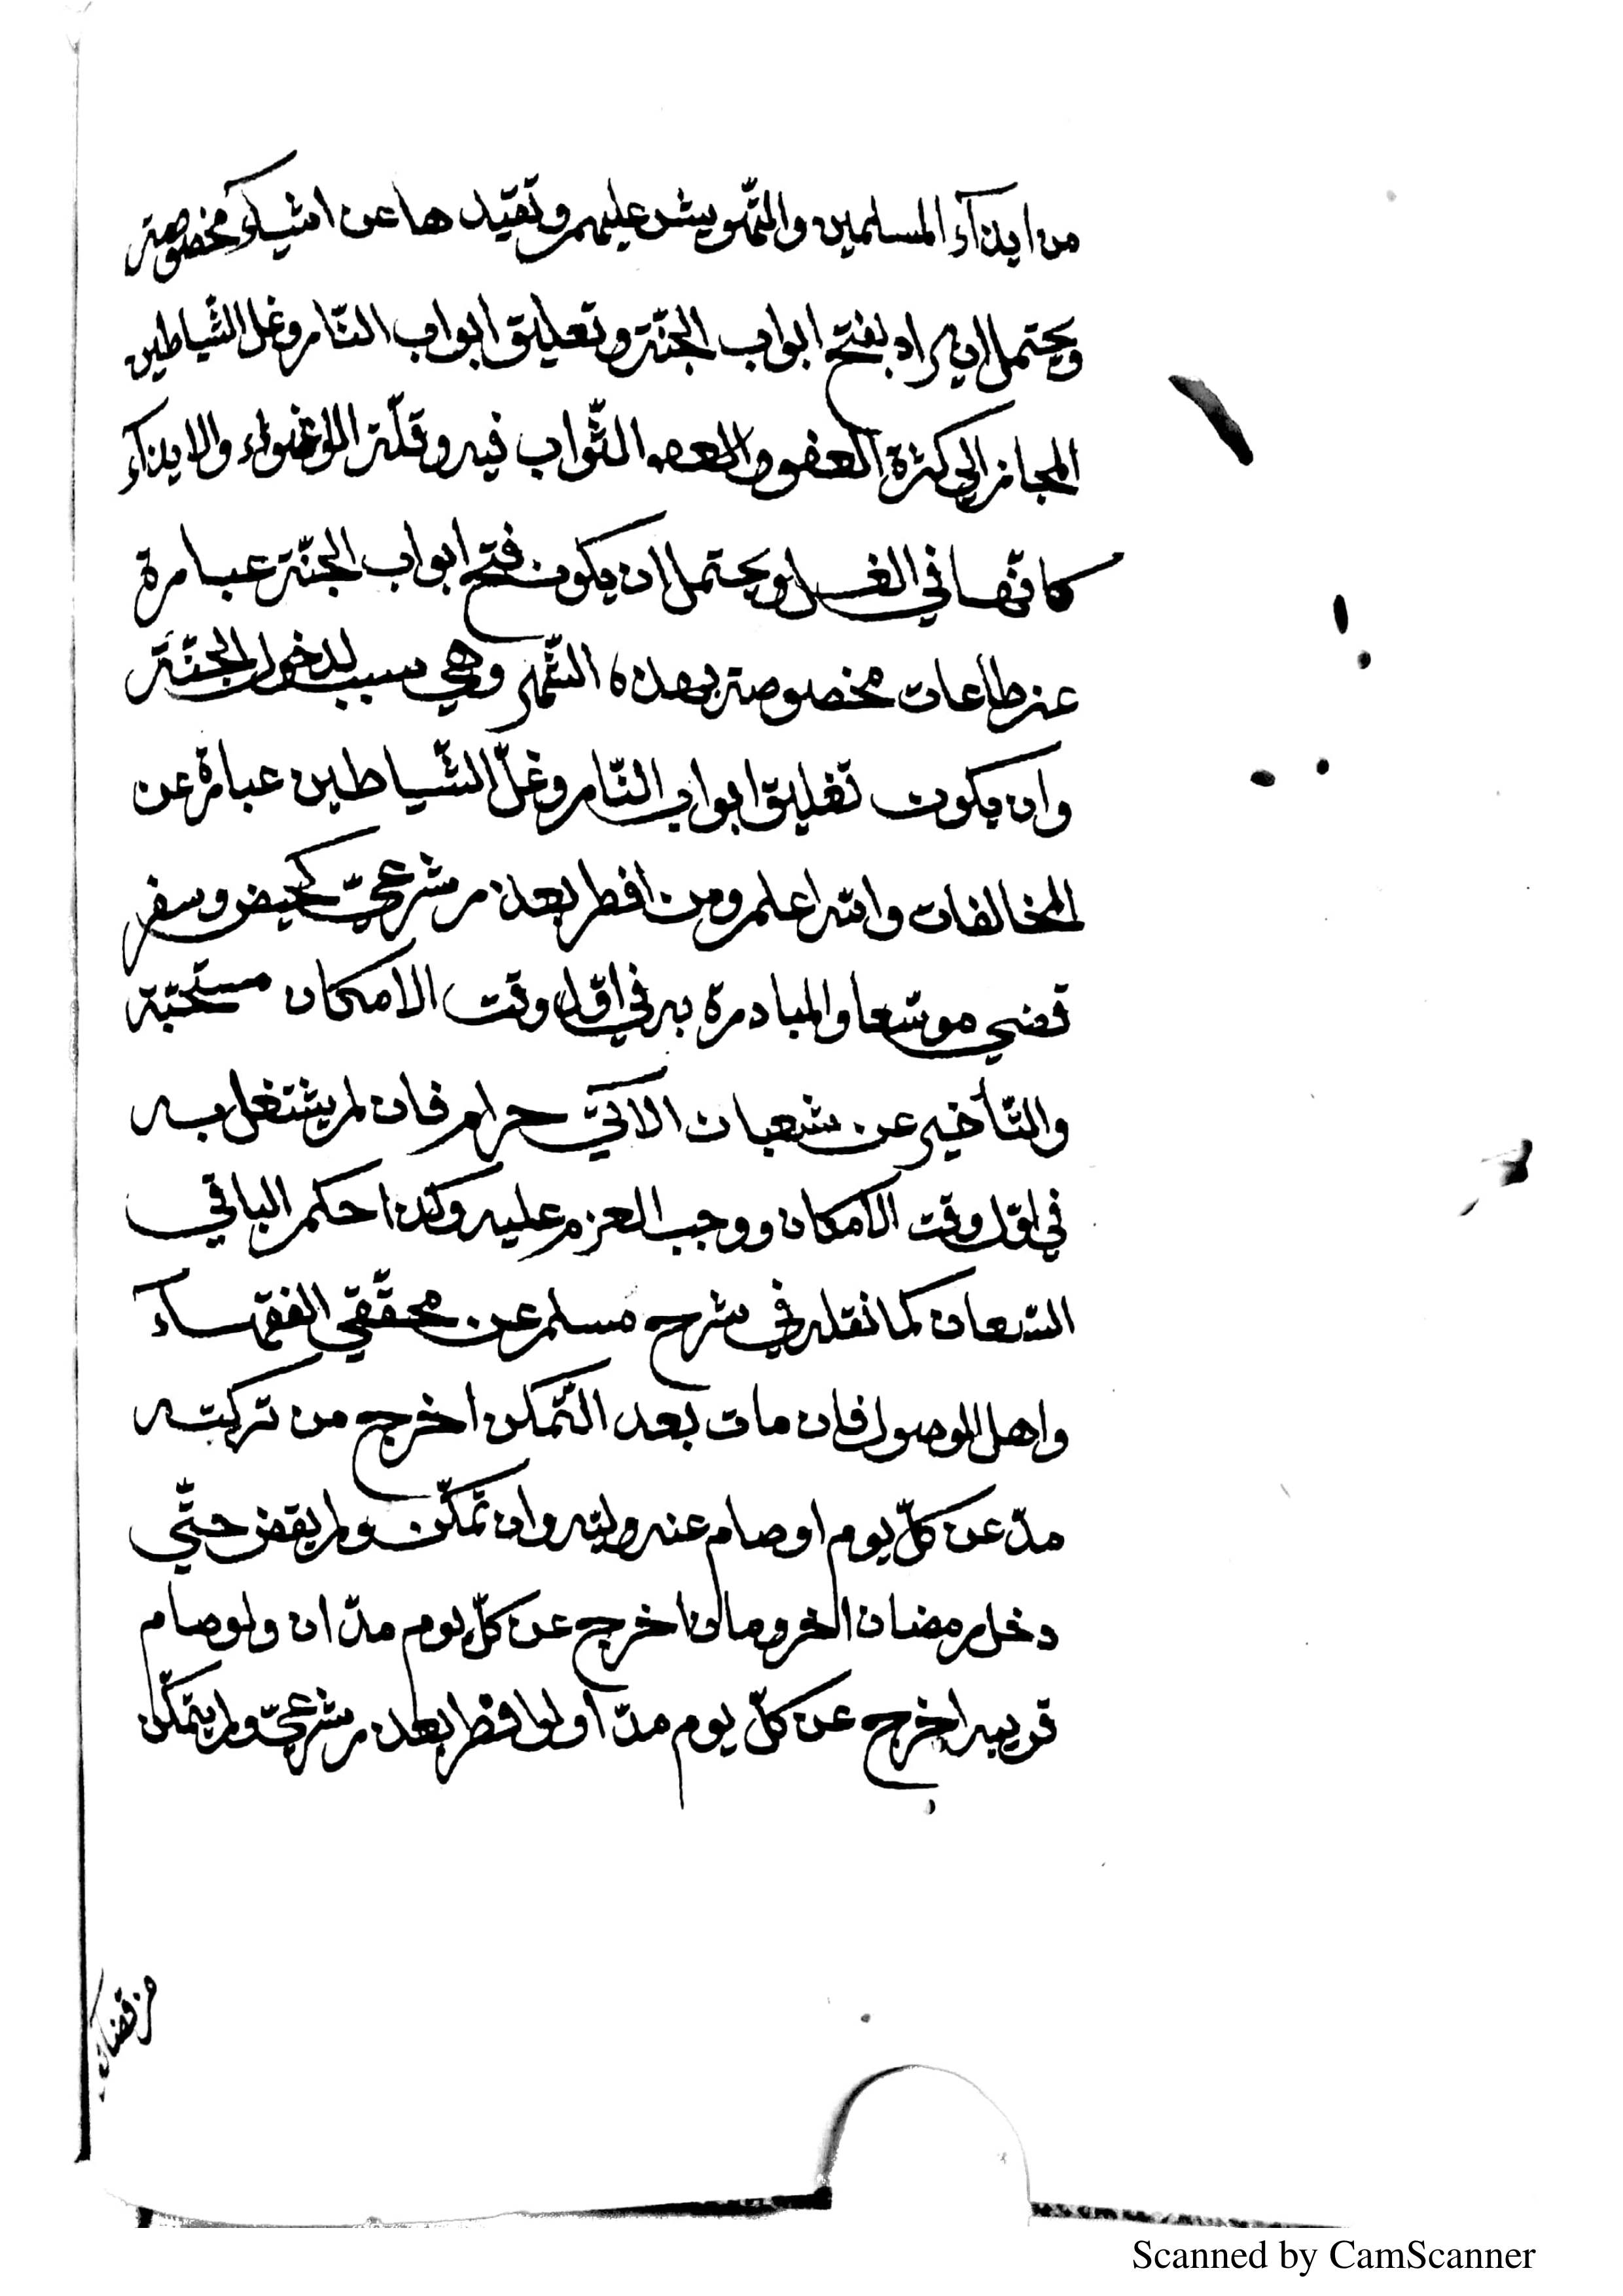 من ايذآء المسلمين والتّهويش عليهم وتقيدها عن اشياء مخصوصة
ويحتمل ان يراد بفتح ابواب الجنّة وتعليق ابواب النّار وغل الشّياطين
المجاز الى كثرة العفو والعصه الثّواب فيه وقلّة الاغواء والايذآء
كانّها في الغل ويحتمل ان يكون فتح ابواب الجنّة عبارة
عن طاعات مخصوصة بهذه الشّهر وهي سبب لدخول الجنّة
وان يكون تغليق ابواب النّار وغلّ الشّياطين عبارة عن
المخالفات والله اعلم ومن افطر بعذر شرعيّ كحيض وسفر
قضي موسّعا والمبادرة به في اوّل وقت الامكان مستحبّة
والتّأخير عن شعبان الاتيّ حرام فان لم يشتغل به
في اوّل وقت الامكان ووجب العزم عليه وكذا حكم الباقي
كما نقله في شرح مسلم عن محقّقي الفقهآء
واهل الوصول فان مات بعد التّمكن اخرج من تركته
مدّ عن كلّ يوم اوصام عنه وليّه وان تمكّن ولم يقض حتّي
دخل رمضان اخر ومات اخرج عن كلّ يوم مدّ ان ولو صام
قريبه اخرج عن كلّ يوم مدّ اولو افطر بعذر شرعيّ ولم يتمكّن
من قضائه
Scanned by CamScanner